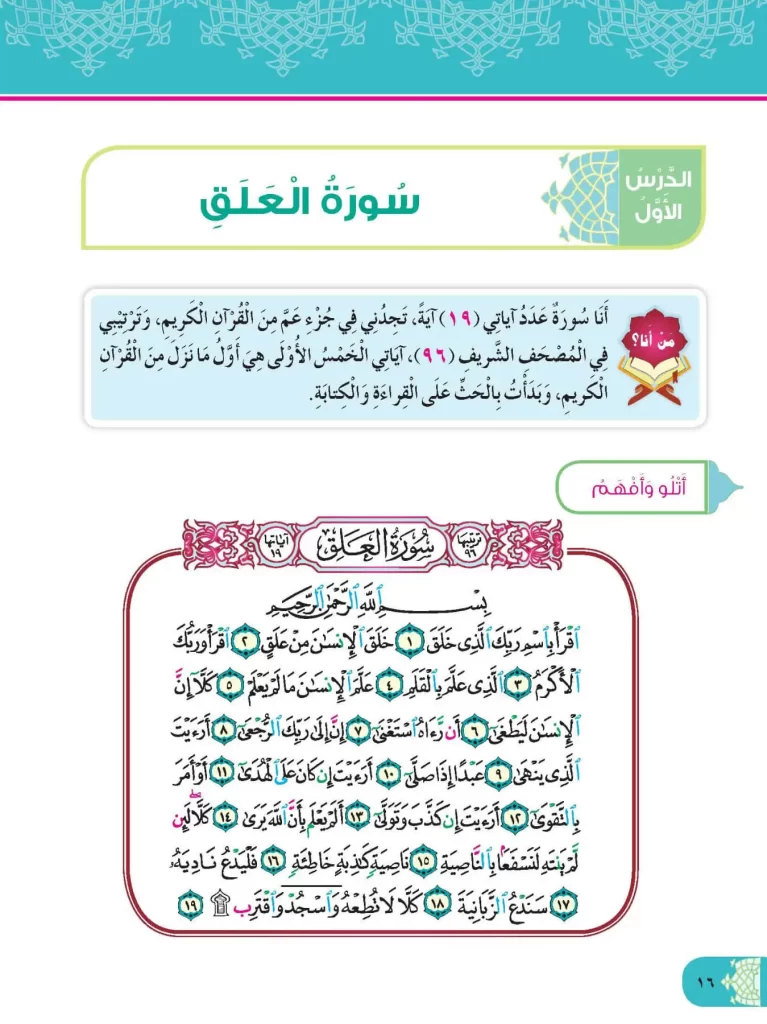 الدَّرْسُ
الأَوَّلُ
سُورَةُ الْعَلَقِ
مَنْ أَنَا؟
أَنَا سُورَةٌ عَدَدُ آيَاتِي (١٩) آيَةً، تَجِدُنِي فِي جُزْءِ عَمَّ مِنَ الْقُرْآنِ الْكَرِيمِ، وَتَرْتِيبِي
فِي الْمُصْحَفِ الشَّرِيفِ (٩٦)، آيَاتِي الْخَمْسُ الْأُولَى هِيَ أَوَّلُ مَا نَزَلَ مِنَ الْقُرْآنِ
الْكَرِيمِ، وَبَدَأْتُ بِالْحَثِّ عَلَى الْقِرَاءَةِ وَالْكِتَابَةِ.
أَتْلُو وَأَفْهَمُ
ترتيبها ٩٦ سُورَةُ الْعَلَقِ آياتها ١٩
بِسْمِ ٱللَّهِ ٱلرَّحْمَٰنِ ٱلرَّحِيمِ
ٱقْرَأْ بِٱسْمِ رَبِّكَ ٱلَّذِى خَلَقَ ١ خَلَقَ ٱلْإِنسَٰنَ مِنْ عَلَقٍ ٢ ٱقْرَأْ وَرَبُّكَ
ٱلْأَكْرَمُ ٣ ٱلَّذِى عَلَّمَ بِٱلْقَلَمِ ٤ عَلَّمَ ٱلْإِنسَٰنَ مَا لَمْ يَعْلَمْ ٥ كَلَّآ إِنَّ
ٱلْإِنسَٰنَ لَيَطْغَىٰٓ ٦ أَن رَّءَاهُ ٱسْتَغْنَىٰٓ ٧ إِنَّ إِلَىٰ رَبِّكَ ٱلرُّجْعَىٰٓ ٨ أَرَءَيْتَ
ٱلَّذِى يَنْهَىٰ ٩ عَبْدًا إِذَا صَلَّىٰٓ ١٠ أَرَءَيْتَ إِن كَانَ عَلَى ٱلْهُدَىٰٓ ١١ أَوْ أَمَرَ
بِٱلتَّقْوَىٰٓ ١٢ أَرَءَيْتَ إِن كَذَّبَ وَتَوَلَّىٰٓ ١٣ أَلَمْ يَعْلَم بِأَنَّ ٱللَّهَ يَرَىٰ ١٤ كَلَّا لَئِن
لَّمْ يَنتَهِ لَنَسْفَعًۢا بِٱلنَّاصِيَةِ ١٥ نَاصِيَةٍ كَٰذِبَةٍ خَاطِئَةٍ ١٦ فَلْيَدْعُ نَادِيَهُۥ
١٧ سَنَدْعُ ٱلزَّبَانِيَةَ ١٨ كَلَّا لَا تُطِعْهُ وَٱسْجُدْ وَٱقْتَرِب ۩ ١٩
١٦